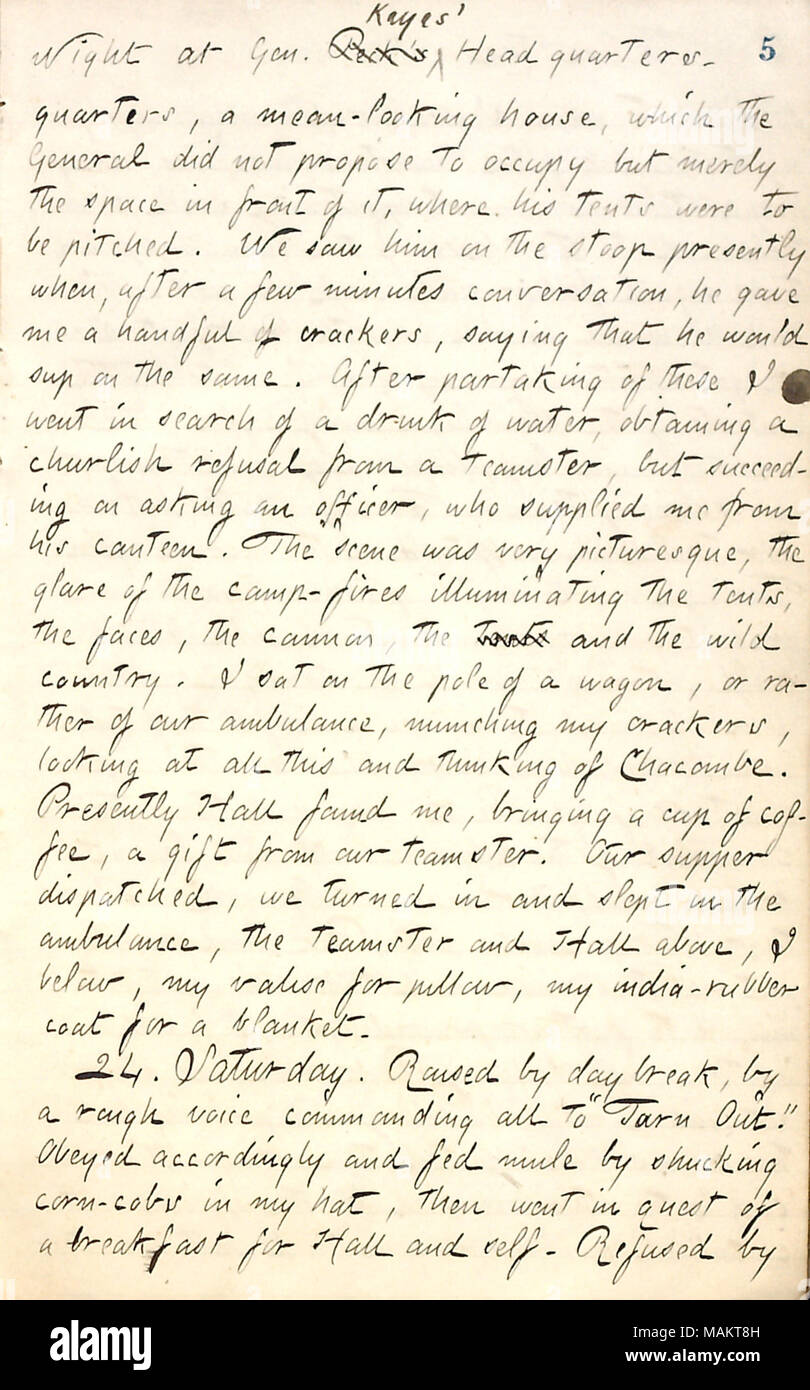 Kayes'
Night at Gen. Peck's Head quarters. 5
quarters, a mean-looking house, which the
General did not propose to occupy but merely
the space in front of it, where his tents were to
be pitched. We saw him on the stoop presently
when, after a few minutes conversation, he gave
me a handful of crackers, saying that he would
sup on the same. After partaking of these I
went in search of a drink of water, obtaining a
churlish refusal from a teamster, but succeed-
ing on asking an officer, who supplied me from
his canteen. The scene was very picturesque, the
glare of the camp-fires illuminating the tents,
the faces, the cannon, the tents and the wild
country. I sat on the pole of a wagon, or ra-
ther of our ambulance, munching my crackers,
looking at all this and thinking of Chacombe.
Presently Hall found me, bringing a cup of cof-
fee, a gift from our teamster. Our supper
dispatched, we turned in and slept in the
ambulance, the teamster and Hall above, I
below, my valise for pillow, my india-rubber
coat for a blanket.
24. Saturday. Roused by day break, by
a rough voice commanding all to "Turn Out"!
Obeyed accordingly and fed mule by shucking
corn-cobs in my hat, then went in quest of
a breakfast for Hall and self. Refused by
alamy
Image ID: MAKT8H
www.alamy.com